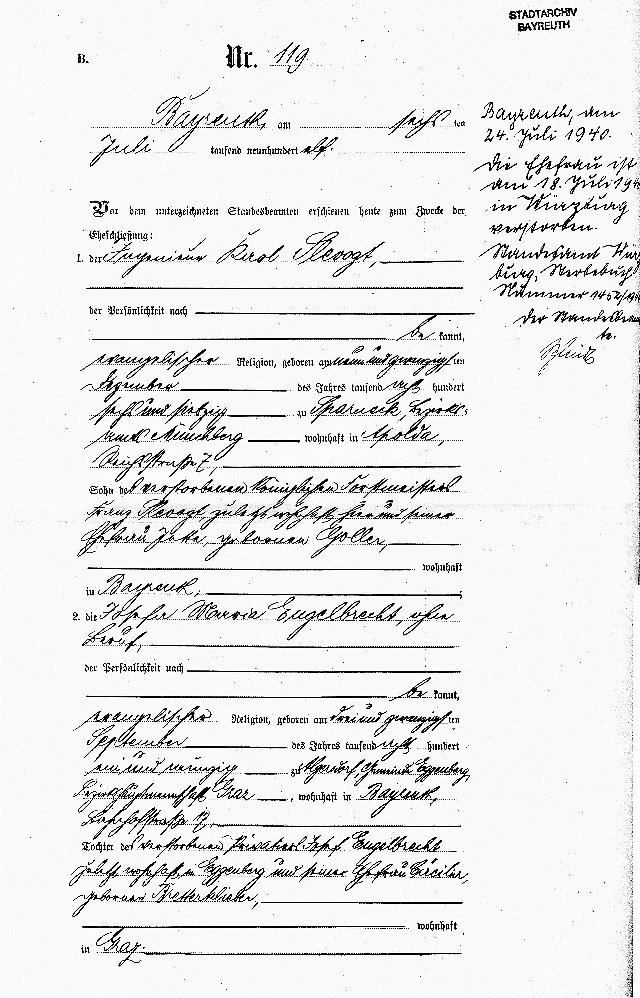 STADTARCHIV
BAYREUTH
B.
Nr. 119
Bayreuth, am sechs ten
Juli tausend neunhundert elf.
Vor dem unterzeichneten Standesbeamten erschienen heute zum Zwecke der
Eheschließung:
1. der Ingenieur Karl Slevogt,
der Persönlichkeit nach
be kannt,
evangelischer Religion, geboren am neun und zwanzigs ten
Dezember des Jahres tausend acht hundert
sechs und siebzig zu Sparneck, Bezirks-
amts Münchberg wohnhaft in Apolda,
Reichsstraße 7,
Sohn des verstorbenen königlichen Forstmeisters
Franz Slevogt, zuletzt wohnhaft hier und seiner
Ehefrau geborenen Goller,
wohnhaft
in Bayreuth,
2. die Josefa Maria Engelbrecht, ohne
Beruf,
der Persönlichkeit nach
be kannt,
evangelischer Religion, geboren am drei und zwanzigs ten
September des Jahres tausend acht hundert
ein und neunzig zu Algersdorf, Gemeinde Eggenberg,
Bezirkshauptmannschaft Graz, wohnhaft in Bayreuth,
Bahnhofstraße
Tochter des verstorbenen Privatiers Josef Engelbrecht
zuletzt wohnhaft in Eggenberg und seiner Ehefrau Cäcilie,
geborenen Bretterklieber,
wohnhaft
in Graz.
Bayreuth, am
24. Juli 1940.
Die Ehefrau ist
am 18. Juli 194
in Würzburg
verstorben.
Standesamt Würz
burg, Sterbebuch
Nummer
Der Standesbeam
te.